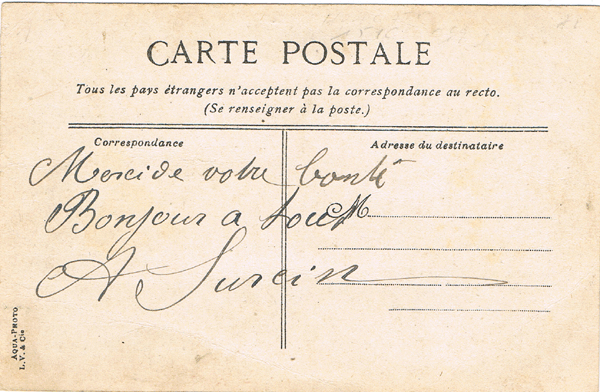 CARTE POSTALE
Tous les pays étrangers n'acceptent pas la correspondance au recto.
(Se renseigner à la poste.)
Correspondance
Adresse du destinataire
Merci de votre bonté
Bonjour a tous
M
A Surcin
AQUA-PHOTO
L.V. & Cie